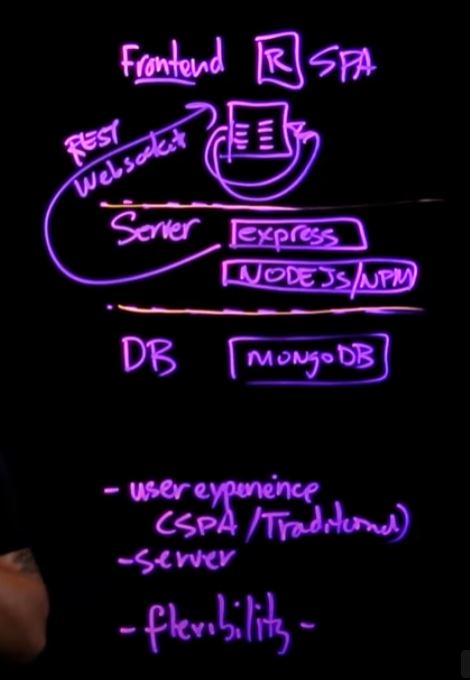 Frontend R SPA
REST
Websocket
Server express
NODEJS/NPM
DB MongoDB
- user experience
(SPA/Traditional)
- server
- flexibility -